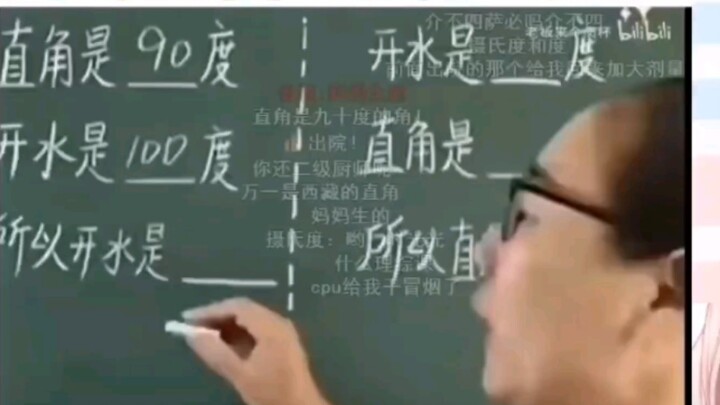 直角是 90 度
开水是 100 度
所以开水是 ____
开水是 ___ 度
直角是 ___
所以直
介不四萨必吗介不四
摄氏度和度
直角是九十度的角！
出院！
万一是西藏的直角
妈妈生的
摄氏度：哟
什么理综
cpu给我干冒烟了
bilibili